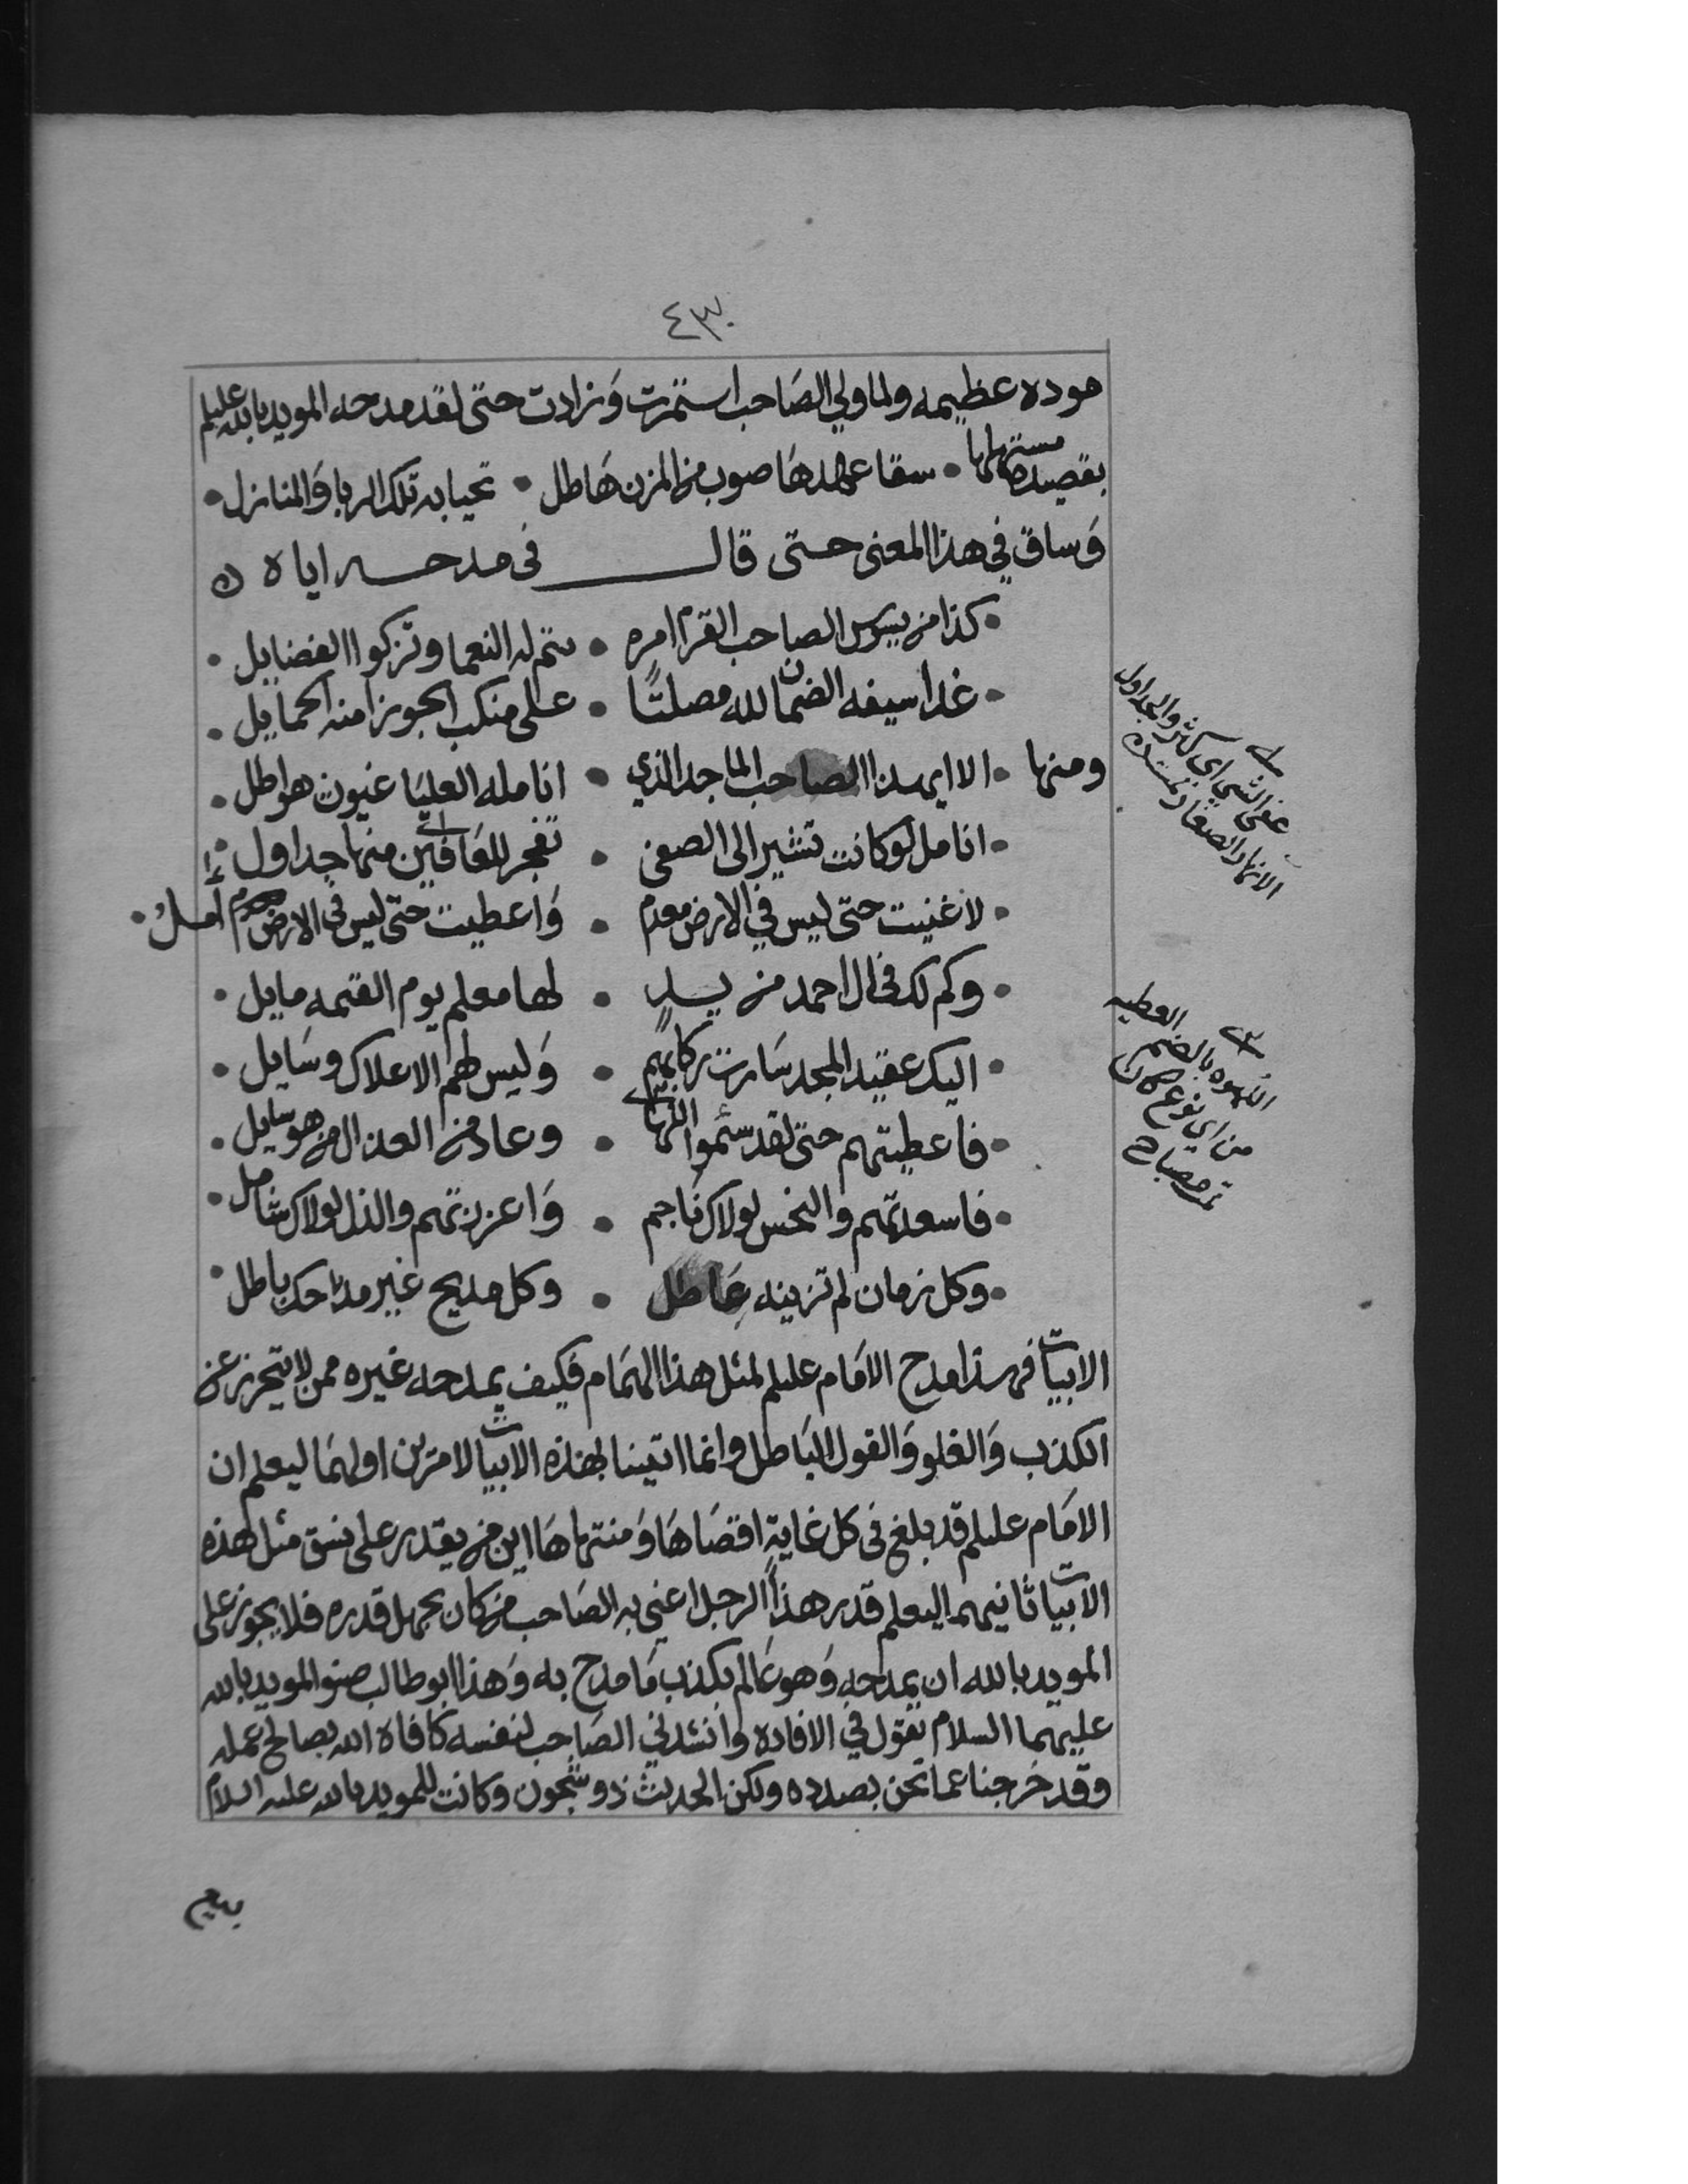 ٤٣٠
موده عظيمه ولما ولي الصَاحب استمرت وَزادت حتى لقد مدحه المويد بالله عليلم
بقصيده مستهلها • سقا عهدهَا صوب من المزن هَاطل • تحيا به تلك الربا وَالمنازل •
وَساق في هذا المعنى حتى قال في مدحه اياه
• كذا من يسوس الصاحب القرم امره • تتم له النعما وتزكوا الفضايل •
• غدا سيفه الضمان لله مصلتًا • على منكب الجوزا منه الحمايل •
ومنها • الا ايهذا الصاحب الماجد الذي • انامله العليَا غيوث هواطل •
• انامل لو كانت تشير الى الصفى • تفجر للعَافين منها جداول •
• لاغنيت حتى ليس في الارض معدم • وَاعطيت حتى ليس في الارض امل •
• وكم لك في ال احمد من يدٍ • لها معلم يوم القيمه مايل •
• اليك عقيد المجد سَارت ركابهم • وَليس لهم الا علاك وسَايل •
• فاعطيتهم حتى لقد سئموا اللها • وعاد من العذال من هو سايل •
• فاسعدتهم والنحس لولاك نَاجم • وَاعززتهم والذل لولاك شامل •
• وكل زمان لم تزينه عَاطل • وكل مديح غير مدحك باطل •
الابيات فهذا مدح الامَام عليلم لمثل هذا الهمَام فكيف يمدحه غيره ممن لا يتحرز عن
الكذب وَالغلو وَالقول البَاطل وانما اتينا بهذه الابيات لامرين اولهمَا ليعلم ان
الامَام عليلم قد بلغ في كل غايةٍ اقصَاهَا وَمنتهاهَا اين من يقدر على نسق مثل هذه
الابيات ثانيهما ليعلم قدر هذا الرجل اعني به الصَاحب من كان يجهل قدره فلا يجوز على
المويد بالله ان يمدحه وَهو عَالم بكذب مَا مدح به وَهذا ابو طالب صنو المويد بالله
عليهما السلام يقول في الافاده وانشدني الصَاحب لنفسه كافاه الله بصالح عمله
وقد خرجنا عما نحن بصدده ولكن الحديث ذو شجون وكانت للمويد بالله عليه السلام
عفى الشي اي كثر والجداول
الانهار الصغار تمت
اللهوه بالضم العطيه
من اي نوع كان
تمت مصباح